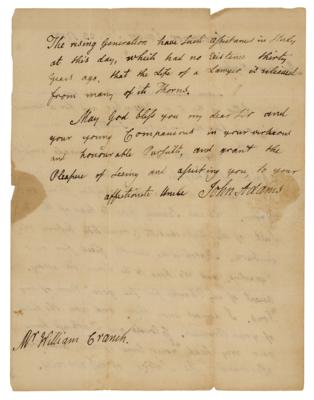 The rising Generation have such assistance in Study
at this day, which had no existence thirty
years ago, that the Life of a Lawyer is released
from many of its Thorns.
May God bless you my dear Sir and
your young Companions in your virtuous
and honourable Pursuits, and grant the
Pleasure of Seeing and assisting you, to your
affectionate Uncle John Adams
Mr. William Cranch.